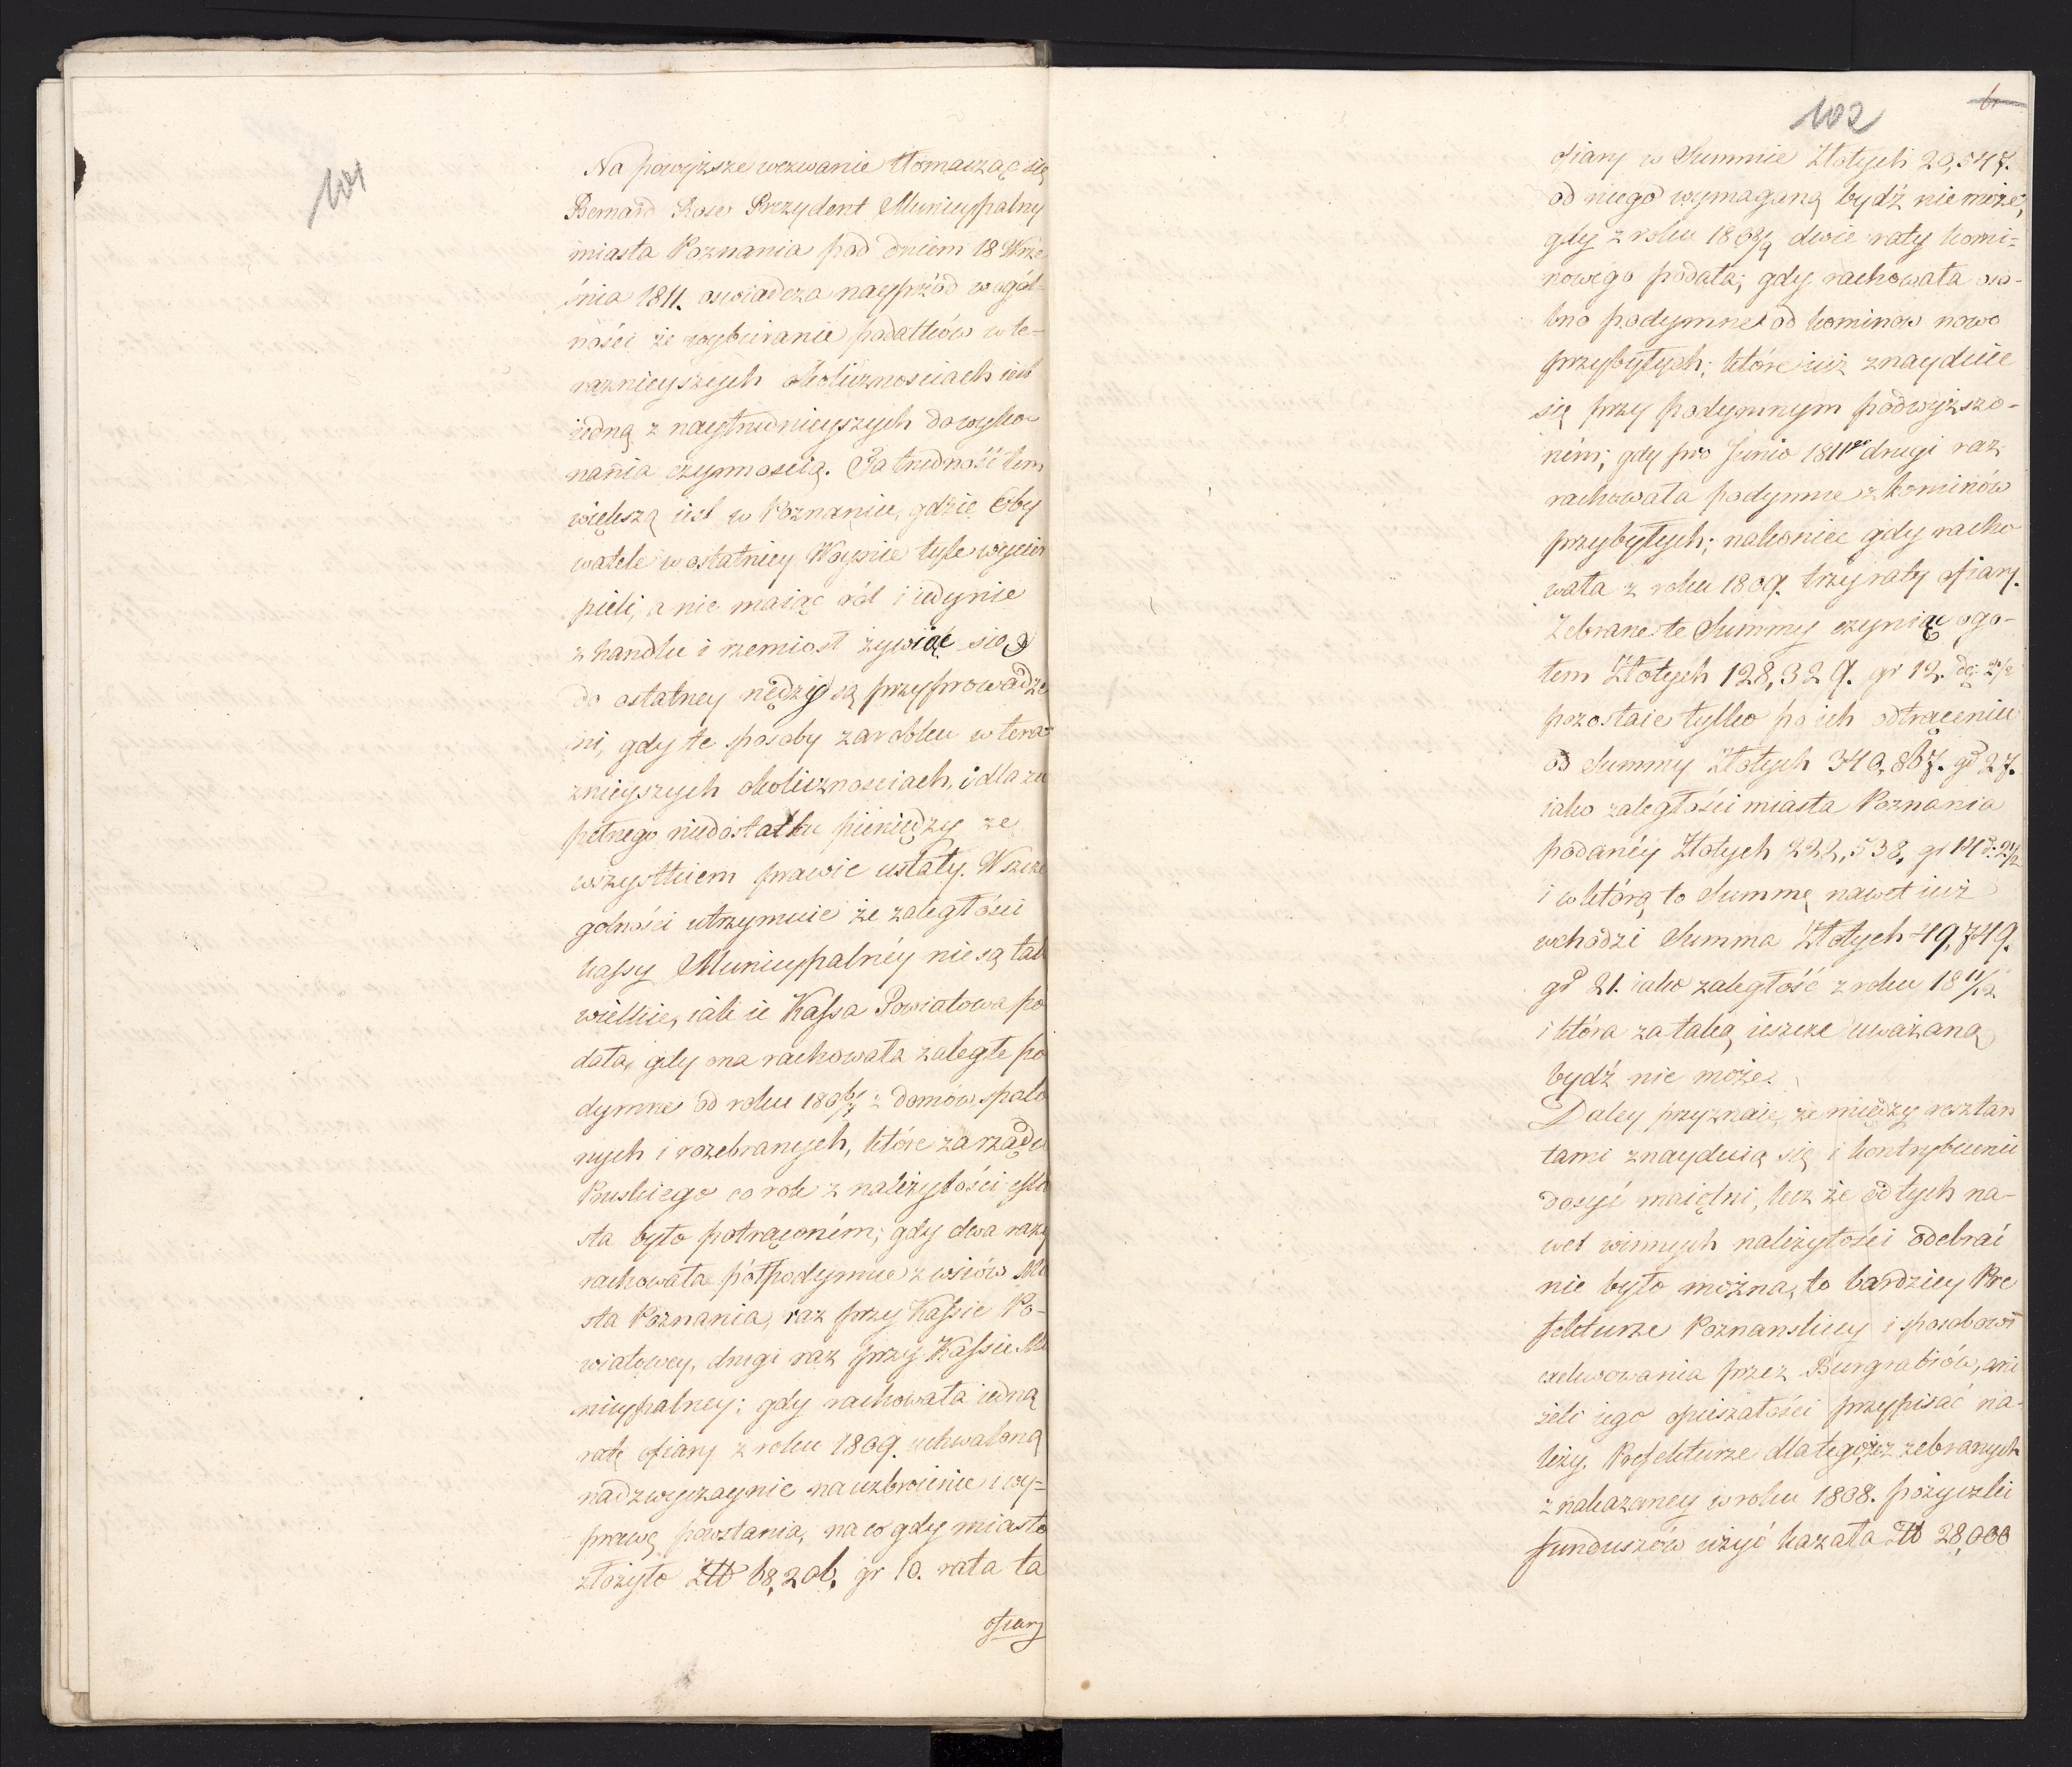 101
Na powyższe wezwanie tłomacząc się
Bernard Rose Prezydent Municypalny
miasta Poznania pod dniem 18 Wrze
śnia 1811. oswiadcza nayprzód w ogól-
ności że wybieranie podatków w te-
raznieyszych okolicznosciach iest
iedną z naytrudnieyszych do wyko-
nania czynnoscią. Ta trudność tem
większą iest w Poznaniu, gdzie Oby
watele w ostatniey Woynie tyle wycier
pieli, a nie maiąc ról i iedynie
z handlu i rzemiosł żywiąc się
do ostatney nędzy są przyprowadze
ni, gdy te sposoby zarobku w tera
znieyszych okolicznosciach, i dla zu
pełnego niedostatku pieniędzy ze
wszystkiem prawie ustały. W szcze
golności utrzymuie że zaległości
kassy Municypalnéy nie są tak
wielkie, iak ie Kassa Powiatowa po
dała, gdy ona rachowała zaległe po
dymne od roku 1806/7 z domów spalo
nych i rozebranych, które za rządu
Pruskiego co rok z należytości mia
sta było potrąconém; gdy dwa razy
rachowała półpodymne z wsiów Mia
sta Poznania, raz przy Kassie Po-
wiatowey, drugi raz przy Kassie Mu
nicypalney; gdy rachowała iedną
ratę ofiary z roku 1809. uchwaloną
nadzwyczaynie na uzbroienie i wy-
prawę powstania, na co gdy miasto
złożyło Złt 68,206, gr 10. rata ta
ofiary
102
6
ofiary w Summie Złotych 20,547.
od niego wymaganą bydź nie może,
gdy z roku 1808/9 dwie raty komi-
nowego podała; gdy rachowała oso-
bno podymne od kominow nowo
przybyłych; które iuż znayduie
się przy podymnym podwyższo-
ném; gdy pro Junio 1811go drugi raz
rachowała podymne z kominów
przybyłych; nakoniec gdy racho
wała z roku 1809. trzy raty ofiary.
Zebrane te Summy czyniąc ogo-
łem Złotych 128,329. gr 12. d: 2 1/2
pozostaie tylko po ich odtrąceniu
od Summy Złotych 340,867. gr 27.
iako zaległości miasta Poznania
podanéy Złotych 222,538, gr 14 d: 2 1/2
i w którą to Summę nawet iuż
wchodzi Summa Złotych 49,749.
gr 21. iako zaległość z roku 18 11/12
i która za taką ieszcze uważaną
bydź nie może.
Daley przyznaie, że między resztan
tami znayduią się i kontrybuenci
dosyć maiętni, lecz że od tych na-
wet winnych należytości odebrać
nie było można, to bardziey Pre
fekturze Poznanskiey i sposobowi
exekwowania przez Burgrabiów, ani
żeli iego opieszałości przypisać na-
leży. Prefekturze dla tego, że z zebranych
z nakazaney w roku 1808. pożyczki
funduszów użyć kazała Złt 28,000